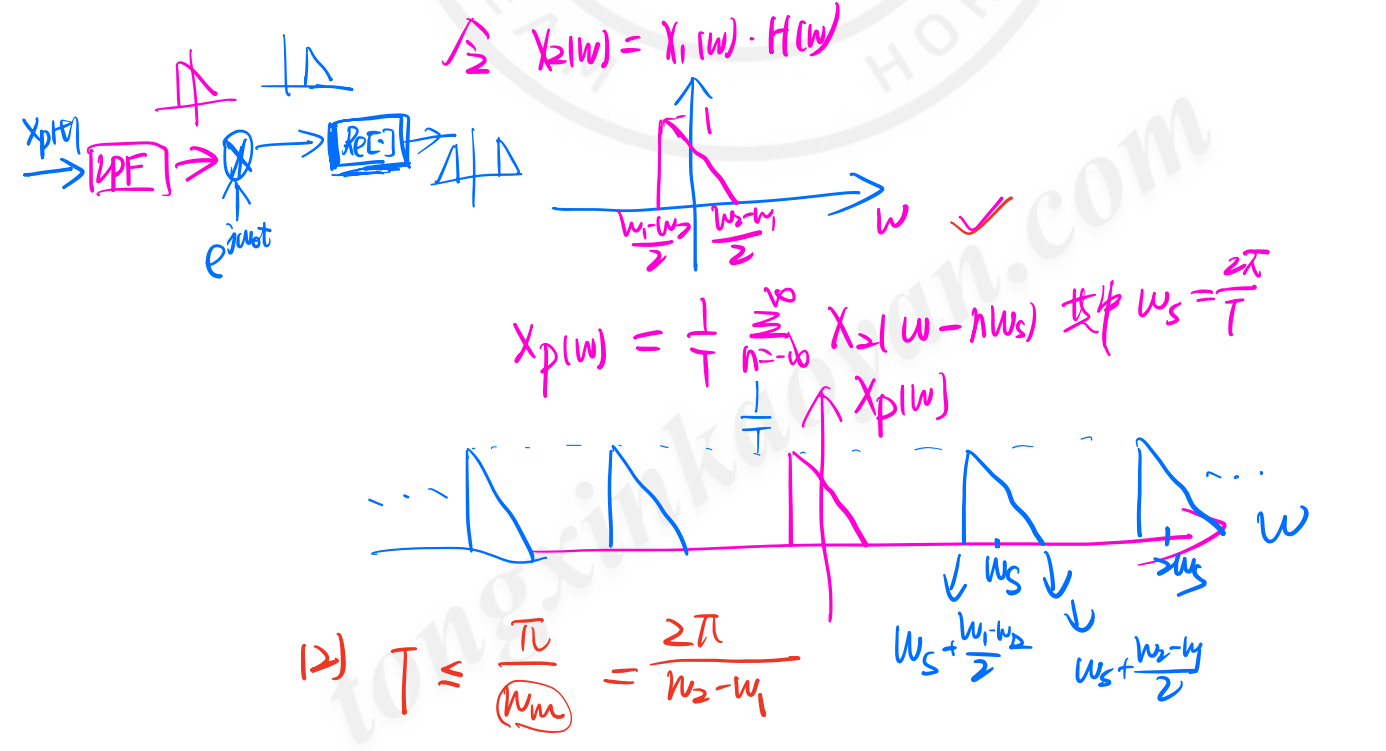 令 X₂(w) = X₁(w)·H(w)
xp(t)
LPF
X
Re[·]
e^{jw₀t}
1
(w₁-w₂)/2
(w₂-w₁)/2
w
Xp(w) = 1/T ∑_{n=-∞}^{∞} X₂(w-nws) 其中 ws = 2π/T
1/T
Xp(w)
...
...
w
ws
2ws
ws+(w₁-w₂)/2
ws+(w₂-w₁)/2
(2) T ≤ π/wm = 2π/(w₂-w₁)
tongxinkaoyan.com